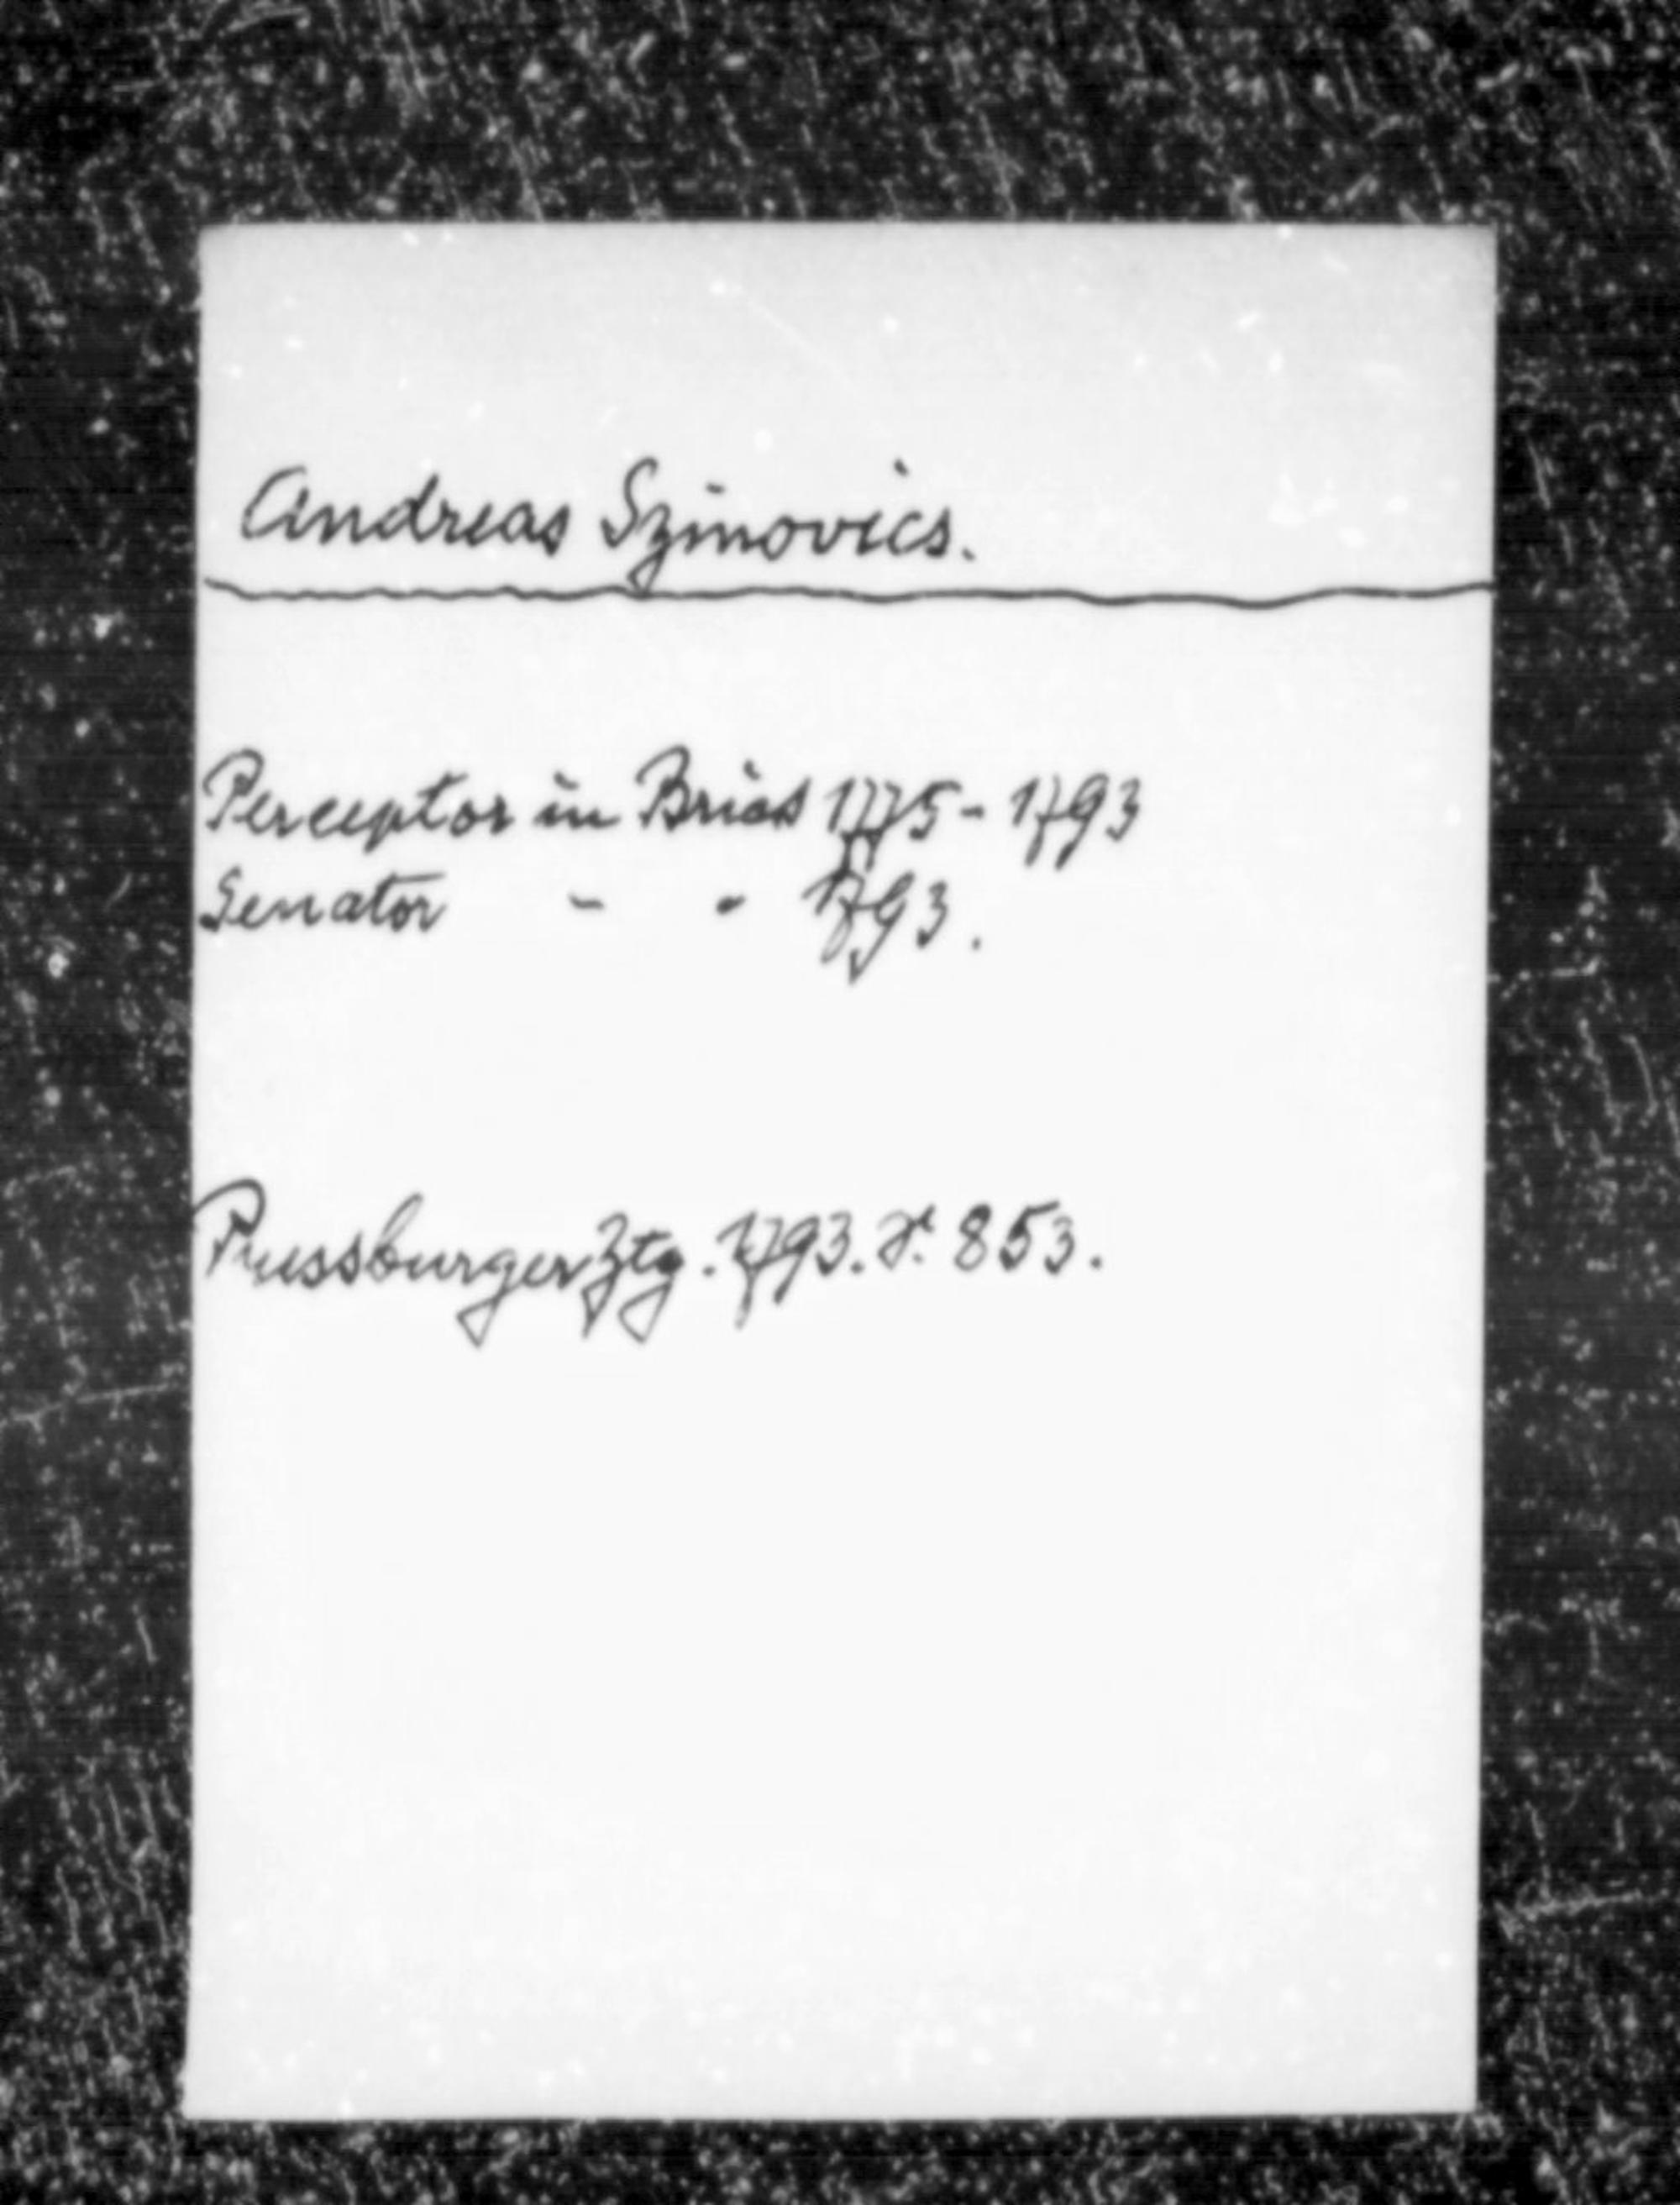 Andreas Szinovics.
Perceptor in Bries 1775 - 1793
Senator - - 1793.
Pressburger Ztg. 1793. S. 853.